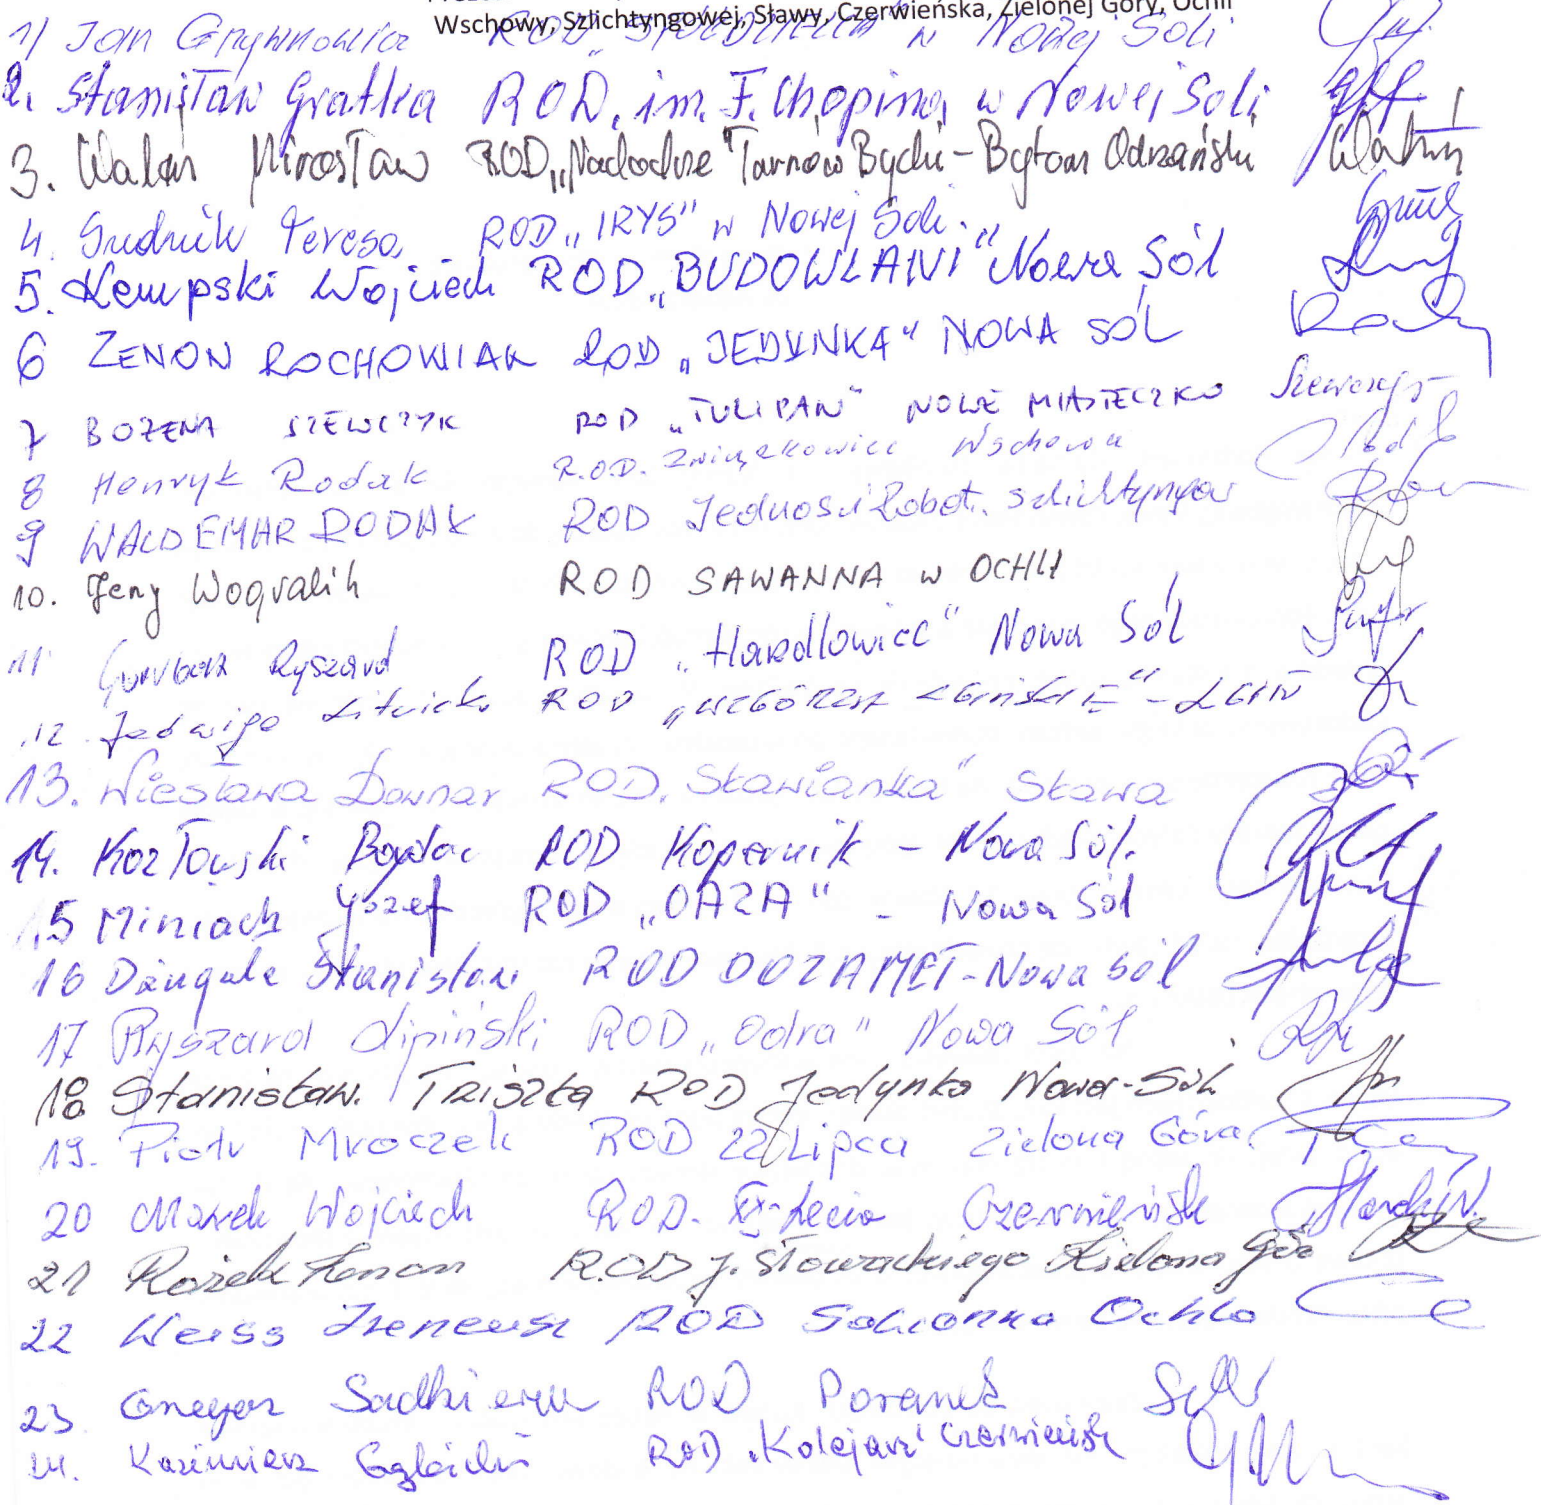 Wschowy, Szlichtyngowej, Sławy, Czerwieńska, Zielonej Góry, Ochli
1) Jan ROD w Nowej Soli
2. Stanisław Gratka ROD. im. F. Chopina w Nowej Soli
3. Walan Mirosław ROD „Nadodrze" Tarnów Bycki - Bytom Odrzański
4. Gudnik Teresa ROD „IRYS" w Nowej Soli.
5. Kempski Wojciech ROD „BUDOWLANI" Nowa Sól
6 ZENON ROCHOWIAK ROD „JEDYNKA" NOWA SÓL
7 BOŻENA SZEWCZYK ROD „TULIPAN" NOWE MIASTECZKO Szewczyk
8 Henryk Rodak R.O.D. Związkowiec Wschowa
9 WALDEMAR RODAK ROD Jedności Robot. Szlichtyngowa
10. Jerzy Wogralik ROD SAWANNA w OCHLI
11 Ryszard ROD „Handlowiec" Nowa Sól
12 Jadwiga ROD „WZGÓRZA
13. Wiesława Downar ROD. Sławianka" Sława
14. Kozłowski Bogdan ROD Kopernik - Nowa Sól.
15 Miniach Józef ROD „OAZA" - Nowa Sól
16 Stanisław ROD DOZAMET - Nowa Sól
17 Ryszard Lipiński ROD „Odra" Nowa Sól
18 Stanisław. Triszka ROD Jedynka Nowa-Sól
19. Piotr Mroczek ROD 22 Lipca Zielona Góra
20 Marek Wojciech ROD. XX-Lecia Czerwieńsk
21 Rożek Zenon R.O.D J. Słowackiego Zielona Góra
22 Weiss Ireneusz ROD Ochla
23. Grzegorz ROD Poranek
24. Kazimierz ROD „Kolejarz" Czerwieńsk